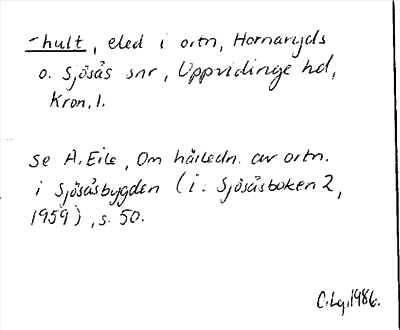 -hult, eled i ortn, Hornaryds
o. Sjösås snr, Uppvidinge hd,
Kron. l.
se A. Eile, Om härledn. av ortn.
i Sjösåsbygden (i: Sjösåsboken 2,
1959), s. 50.
C.Lg.1986.